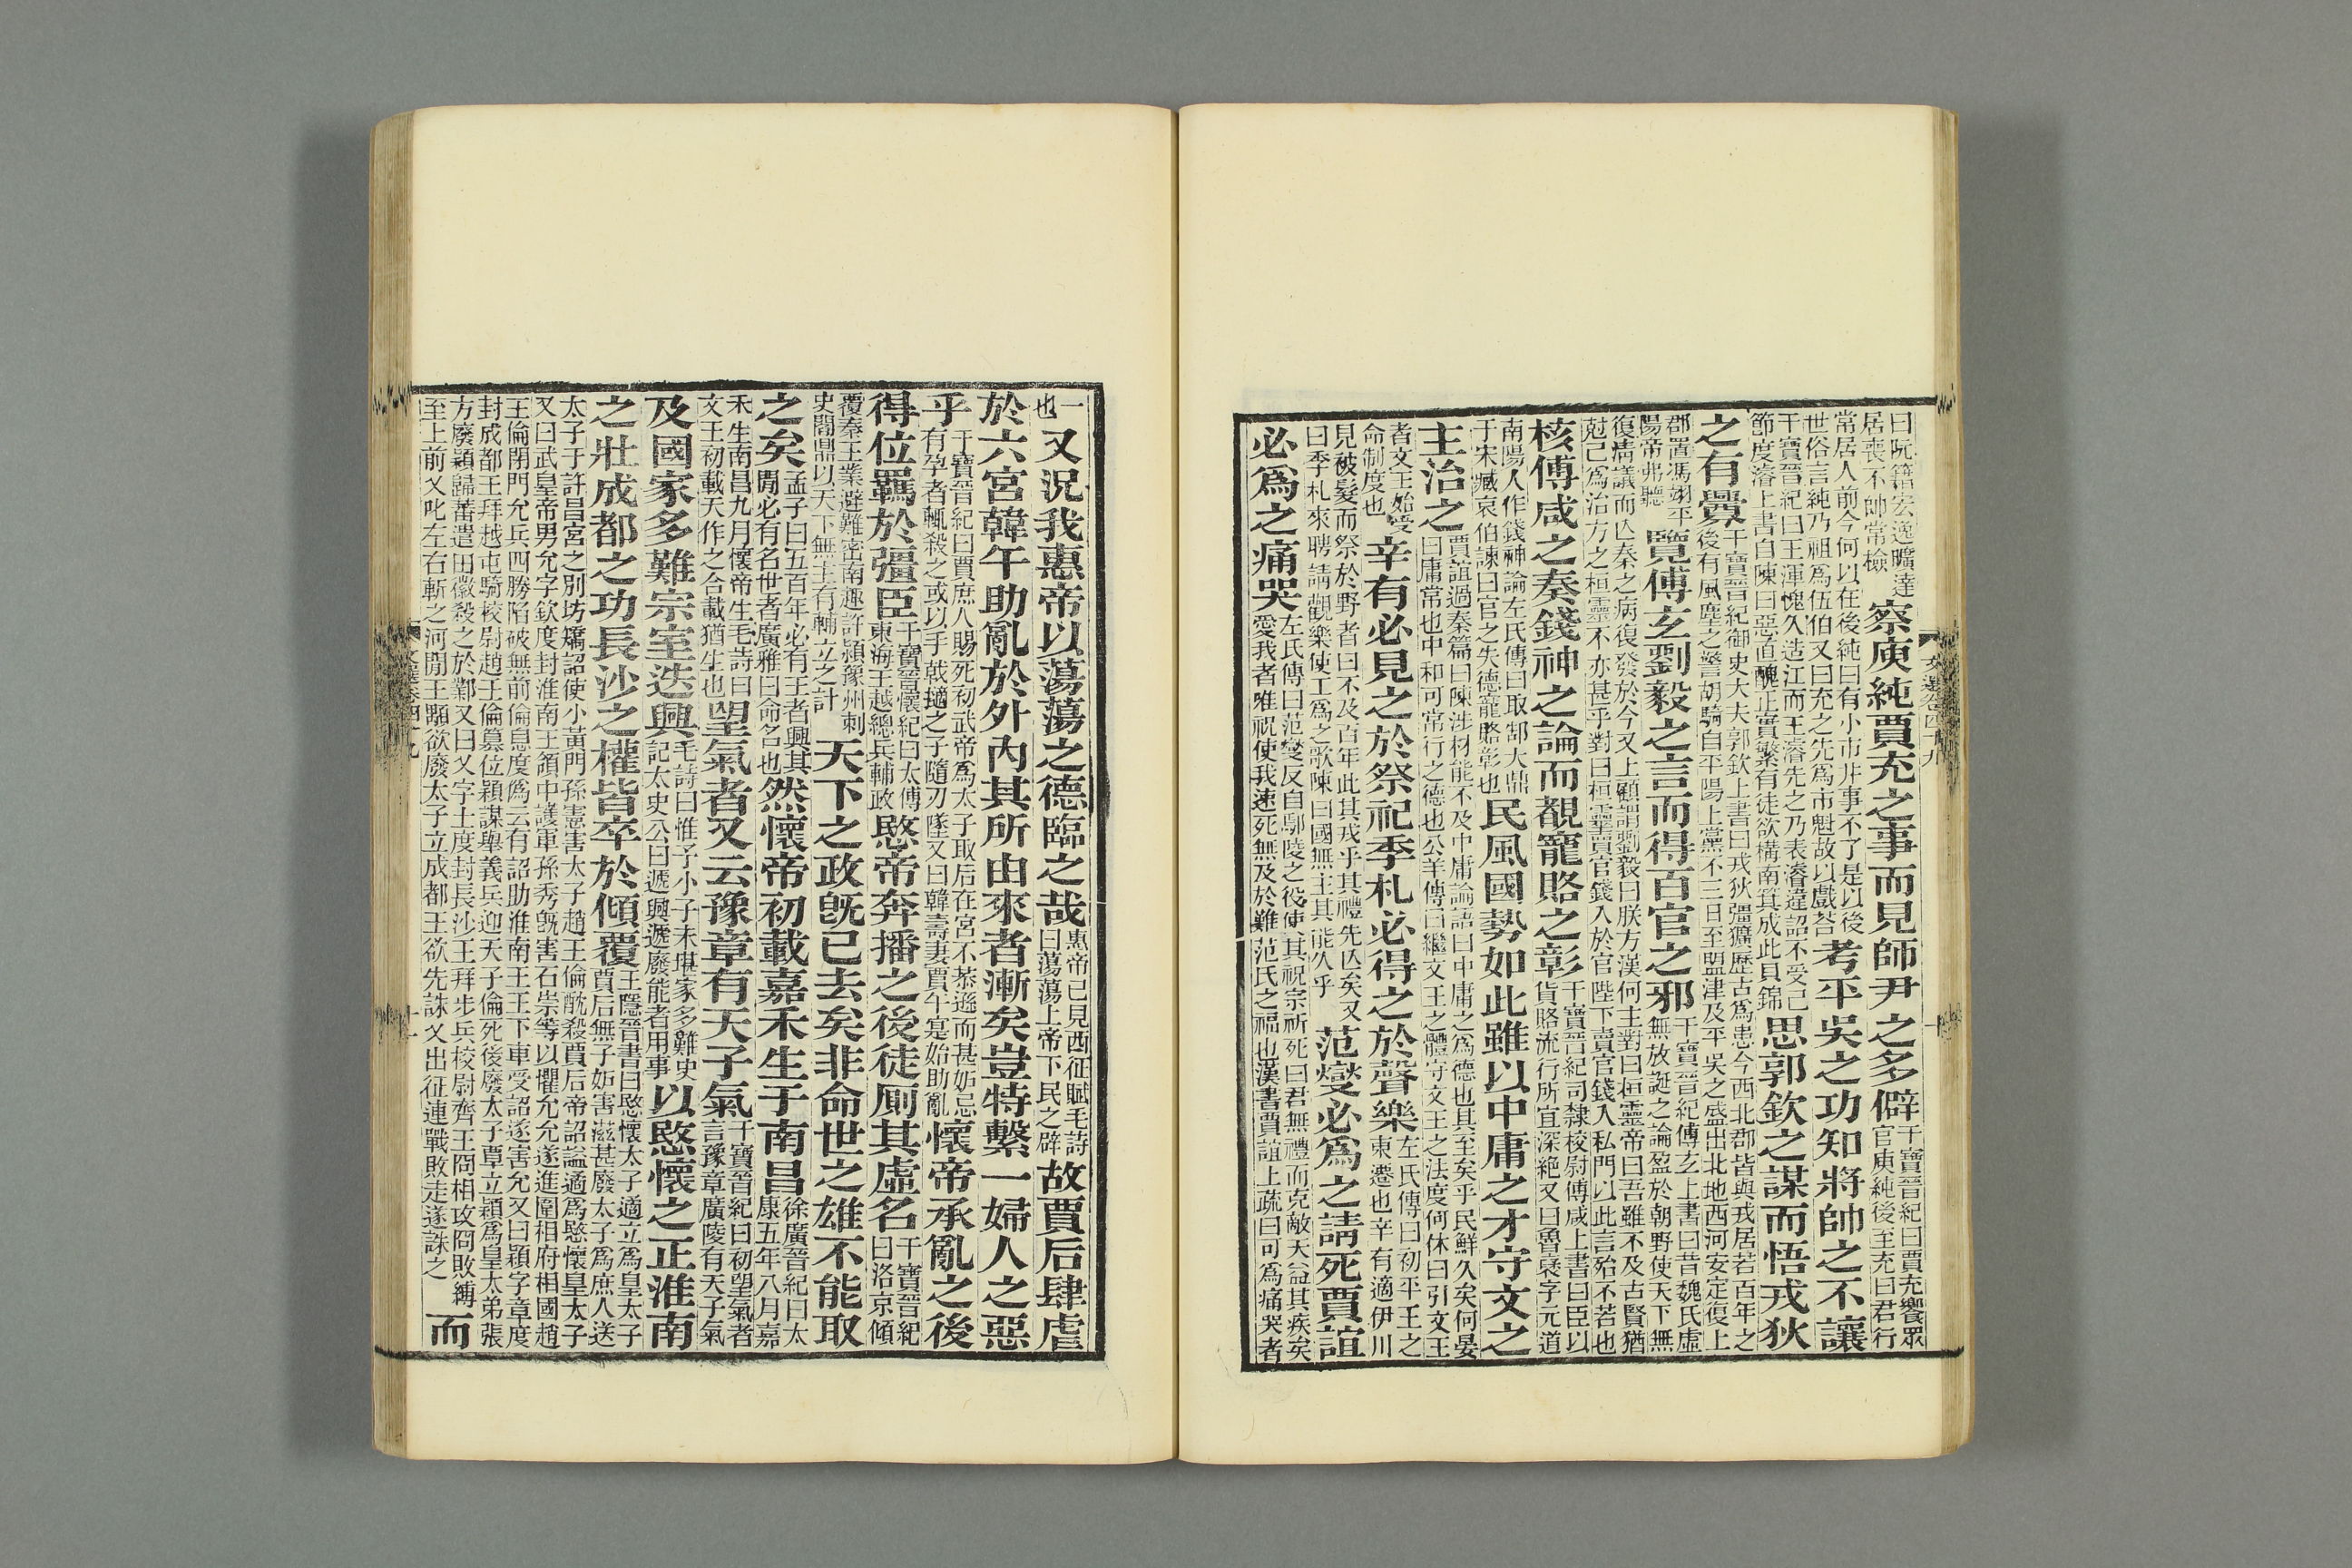 曰阮籍宏逸曠達
居喪不帥常檢
察庾純賈充之事而見師尹之多僻
干寶晉紀曰賈充饗眾
官庾純後至充曰君行
常居人前今何以在後純曰有小市井事不了是以後
世俗言純乃祖爲伍伯又曰充之先爲市魁故以戲荅
考平吳之功知將帥之不讓
干寶晉紀曰王渾愧久造江而王濬先之乃表濬違詔不受己
節度濬上書自陳曰惡直醜正實繁有徒欲構南箕成此貝錦
思郭欽之謀而悟戎狄
之有釁
干寶晉紀御史大夫郭欽上書曰戎狄彊獷歷古爲患今西北郡皆與戎居若百年之
後有風塵之警胡騎自平陽上黨不三日至盟津及平吳之盛出北地西河安定復上
郡置馮翊平
陽帝弗聽
覽傅玄劉毅之言而得百官之邪
干寶晉紀傅玄上書曰昔魏氏虛
無放誕之論盈於朝野使天下無
復清議而亾秦之病復發於今又上顧謂劉毅曰朕方漢何主對曰桓靈帝曰吾雖不及古賢猶
尅己爲治方之桓靈不亦甚乎對曰桓靈賣官錢入於官陛下賣官錢入私門以此言殆不若也
核傅咸之奏錢神之論而覩寵賂之彰
干寶晉紀司隸校尉傅咸上書曰臣以
貨賂流行所宜深絕又曰魯裦字元道
南陽人作錢神論左氏傳曰取郜大鼎
于宋臧哀伯諫曰官之失德寵賂彰也
民風國勢如此雖以中庸之才守文之
主治之
賈誼過秦篇曰陳涉材能不及中庸論語曰中庸之爲德也其至矣乎民鮮久矣何晏
曰庸常也中和可常行之德也公羊傳曰繼文王之體守文王之法度何休曰引文王
者文王始受
命制度也
辛有必見之於祭祀季札必得之於聲樂
左氏傳曰初平王之
東遷也辛有適伊川
見被髮而祭於野者曰不及百年此其戎乎其禮先亾矣又
曰季札來聘請觀樂使工爲之歌陳曰國無主其能久乎
范燮必爲之請死賈誼
必爲之痛哭
左氏傳曰范燮反自鄢陵之役使其祝宗祈死曰君無禮而克敵天益其疾矣
愛我者唯祝使我速死無及於難范氏之福也漢書賈誼上疏曰可爲痛哭者
一
也
又況我惠帝以蕩蕩之德臨之哉
惠帝已見西征賦毛詩
曰蕩蕩上帝下民之辟
故賈后肆虐
於六宮韓午助亂於外內其所由來者漸矣豈特繫一婦人之惡
乎
干寶晉紀曰賈庶人賜死初武帝爲太子取后在宮不恭遜而甚妬忌
有孕者輒殺之或以手戟擿之子隨刃墜又曰韓壽妻賈午寔始助亂
懷帝承亂之後
得位羈於彊臣
干寶晉懷紀曰太傅
東海王越總兵輔政
愍帝奔播之後徒厠其虛名
干寶晉紀
曰洛京傾
覆秦王業避難密南趣許潁豫州刺
史閻鼎以天下無主有輔立之計
天下之政旣已去矣非命世之雄不能取
之矣
孟子曰五百年必有王者興其
閒必有名世者廣雅曰命名也
然懷帝初載嘉禾生于南昌
徐廣晉紀曰太
康五年八月嘉
禾生南昌九月懷帝生毛詩曰
文王初載天作之合載猶生也
望氣者又云豫章有天子氣
干寶晉紀曰初望氣者
言豫章廣陵有天子氣
及國家多難宗室迭興
毛詩曰惟予小子未堪家多難史
記太史公曰遞興遞廢能者用事
以愍懷之正淮南
之壯成都之功長沙之權皆卒於傾覆
王隱晉書曰愍懷太子遹立爲皇太子
賈后無子妬害滋甚廢太子爲庶人送
太子于許昌宮之別坊矯詔使小黃門孫慮害太子趙王倫酖殺賈后帝詔謚遹爲愍懷皇太子
又曰武皇帝男允字欽度封淮南王領中護軍孫秀旣害石崇等以懼允允遂進圍相府相國趙
王倫閉門允兵四勝陷破無前倫息度僞云有詔助淮南王王下車受詔遂害允又曰穎字章度
封成都王拜越屯騎校尉趙王倫慕位穎謀舉義兵迎天子倫死後廢太子覃立穎爲皇太弟張
方廢穎歸蕃遣田徽殺之於鄴又曰乂字士度封長沙王拜步兵校尉齊王冏相攻冏敗縛
至上前乂叱左右斬之河閒王顒欲廢太子立成都王欲先誅乂出征連戰敗走遂誅之
而
文選卷四十九
十一